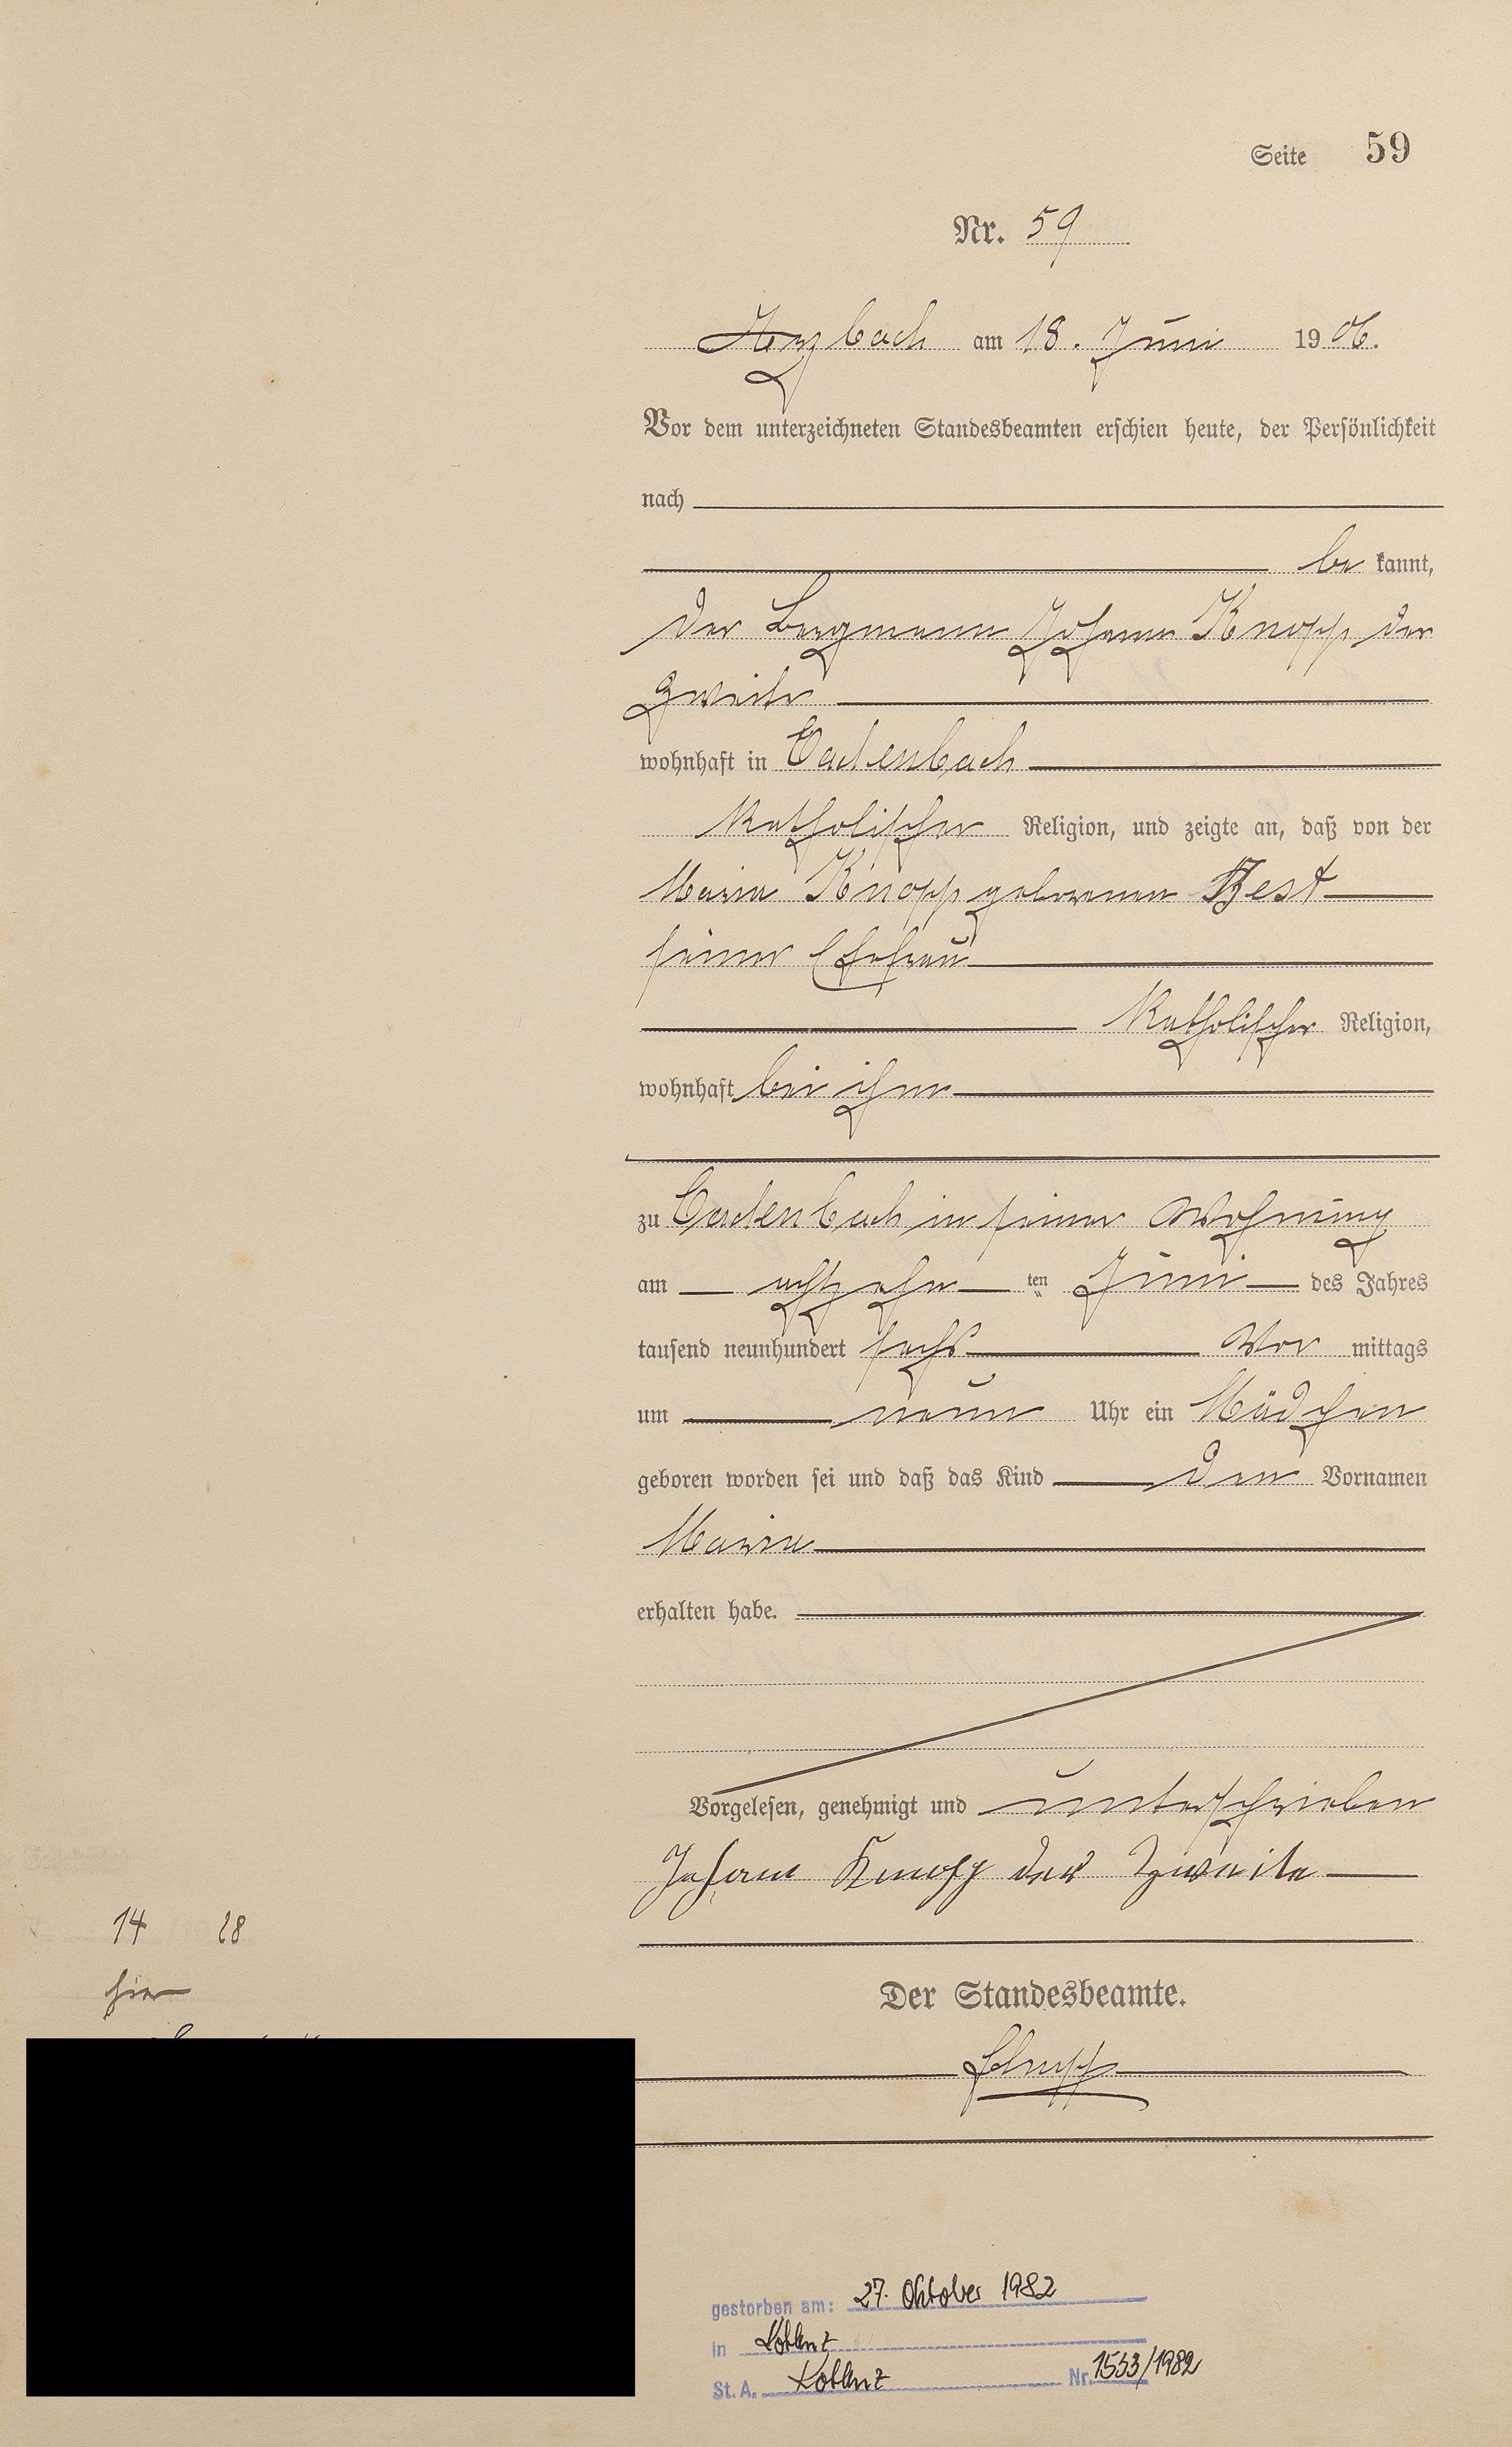 Seite 59
Nr. 59
Arzbach am 18. Juni 1906.
Vor dem unterzeichneten Standesbeamten erschien heute, der Persönlichkeit
nach
be kannt,
der Bergmann Johann Knopp der
zweite
wohnhaft in Cadenbach
katholischer Religion, und zeigte an, daß von der
Maria Knopp geborenen Best
seiner Ehefrau
katholischer Religion,
wohnhaft bei ihm
zu Cadenbach in seiner Wohnung
am achtzehn ten Juni des Jahres
tausend neunhundert sechs Vor mittags
um neun Uhr ein Mädchen
geboren worden sei und daß das Kind den Vornamen
Maria
erhalten habe.
Vorgelesen, genehmigt und unterschrieben
Johann Knopp der Zweite
14 28
hier
Der Standesbeamte.
gestorben am: 27. Oktober 1982
in Koblenz
St. A. Koblenz Nr. 1553/1982